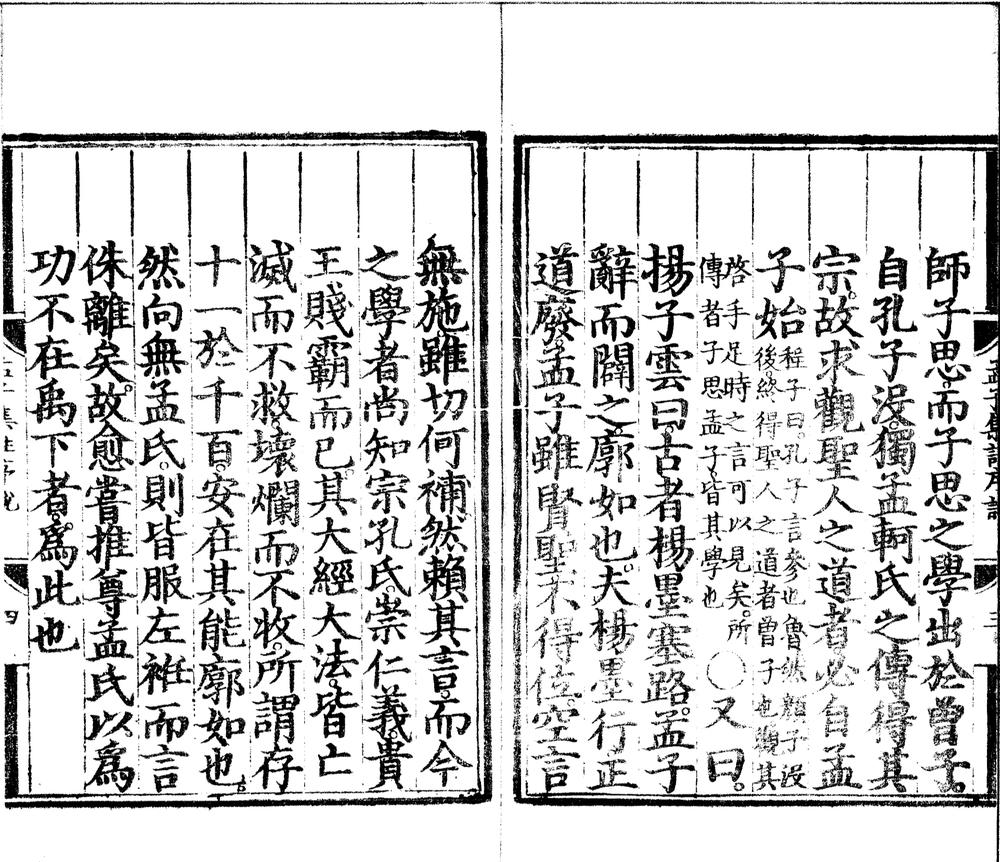 孟子集註序說 三
師子思。而子思之學出於曾子。
自孔子沒。獨孟軻氏之傳得其
宗。故求觀聖人之道者必自孟
子始
程子曰。孔子言參也魯然顏子沒
後。終得聖人之道者曾子也觀其
啓手足時之言可以見矣。所
傳者子思孟子。皆其學也
〇又曰。
揚子雲曰。古者楊墨塞路。孟子
辭而闢之。廓如也。夫楊墨行正
道廢。孟子雖賢聖不得位。空言
無施雖切何補然賴其言。而今
之學者尚知宗孔氏。崇仁義。貴
王賤霸而已。其大經大法。皆亡
滅而不救。壞爛而不收。所謂存
十一於千百。安在其能廓如也。
然向無孟氏。則皆服左衽而言
侏離矣。故愈嘗推尊孟氏以爲
功不在禹下者。爲此也
四